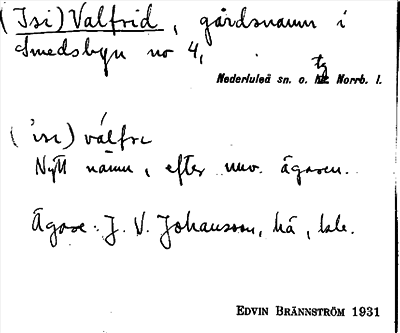 (Isi) Valfrid, gårdsnamn i
Smedsbyn no 4,
Nederluleå sn. o. tg Norrb. l.
('isi) válfre
Nytt namn, efter nuv. ägaren.
Ägare: J. V. Johansson, hä,
EDVIN BRÄNNSTRÖM 1931